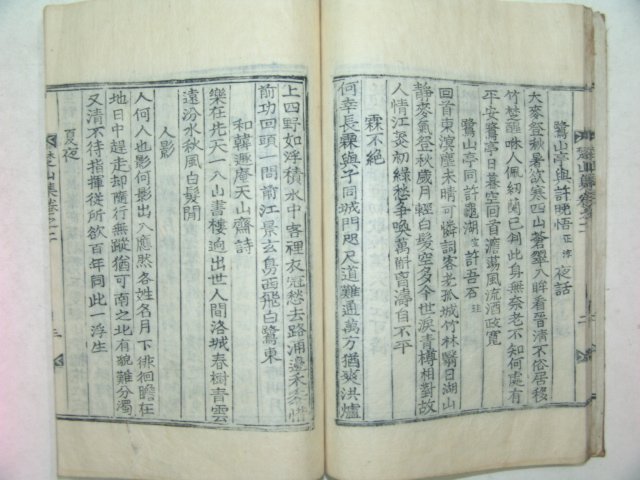 鷺山亭與許晚悟 夜話
大麥登秋暑欲寒四山蒼翠入眸看晉淸不俗居移
竹楚醒咏人佩紉蘭已制此身無奈老不知何處有
平安鷺亭日暮空回首濟蕩風流酒政寬
鷺山亭同許龜湖 許吾石
回首東溟塵未晴可憐詞客老孤城竹林醫日湖山
靜麥氣登秋歲月輕白髮空多今世淚青樽相對故
人情江炎初綠愁爭喚萬斛胷濤自不平
霖不絶
何幸長霖與子同城門咫尺道難通萬方猶爽洪爐
上四野如浮積水中客裡衣冠愁去路浦邊禾黍惜
前功回頭一問前江景玄鳥西飛白鷺東
和韓 庵天山齋詩
樂在先天一入山書樓逈出世人間洛城春樹青雲
遠汾水秋風白髮閒
人影
人何人也影何影出入應然各姓名月下徘徊瞻在
地日中趕走却隨行無蹤猶可南之北有貌難分濁
又淸不待指揮從所欲百年同此一浮生
夏夜
楚山集卷之二 三